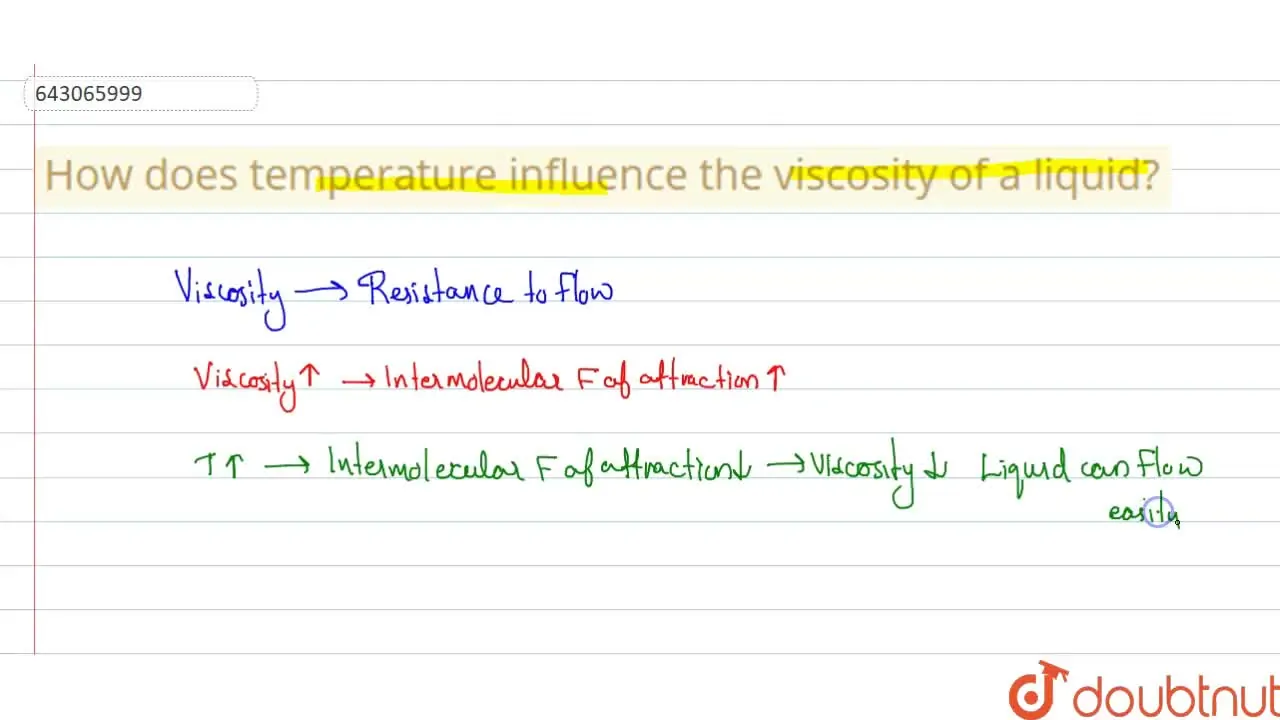 643065999
How does temperature influence the viscosity of a liquid?
Viscosity → Resistance to flow
Viscosity ↑ → Intermolecular F of attraction ↑
T ↑ → Intermolecular F of attraction ↓ → Viscosity ↓ Liquid can flow
easily
doubtnut